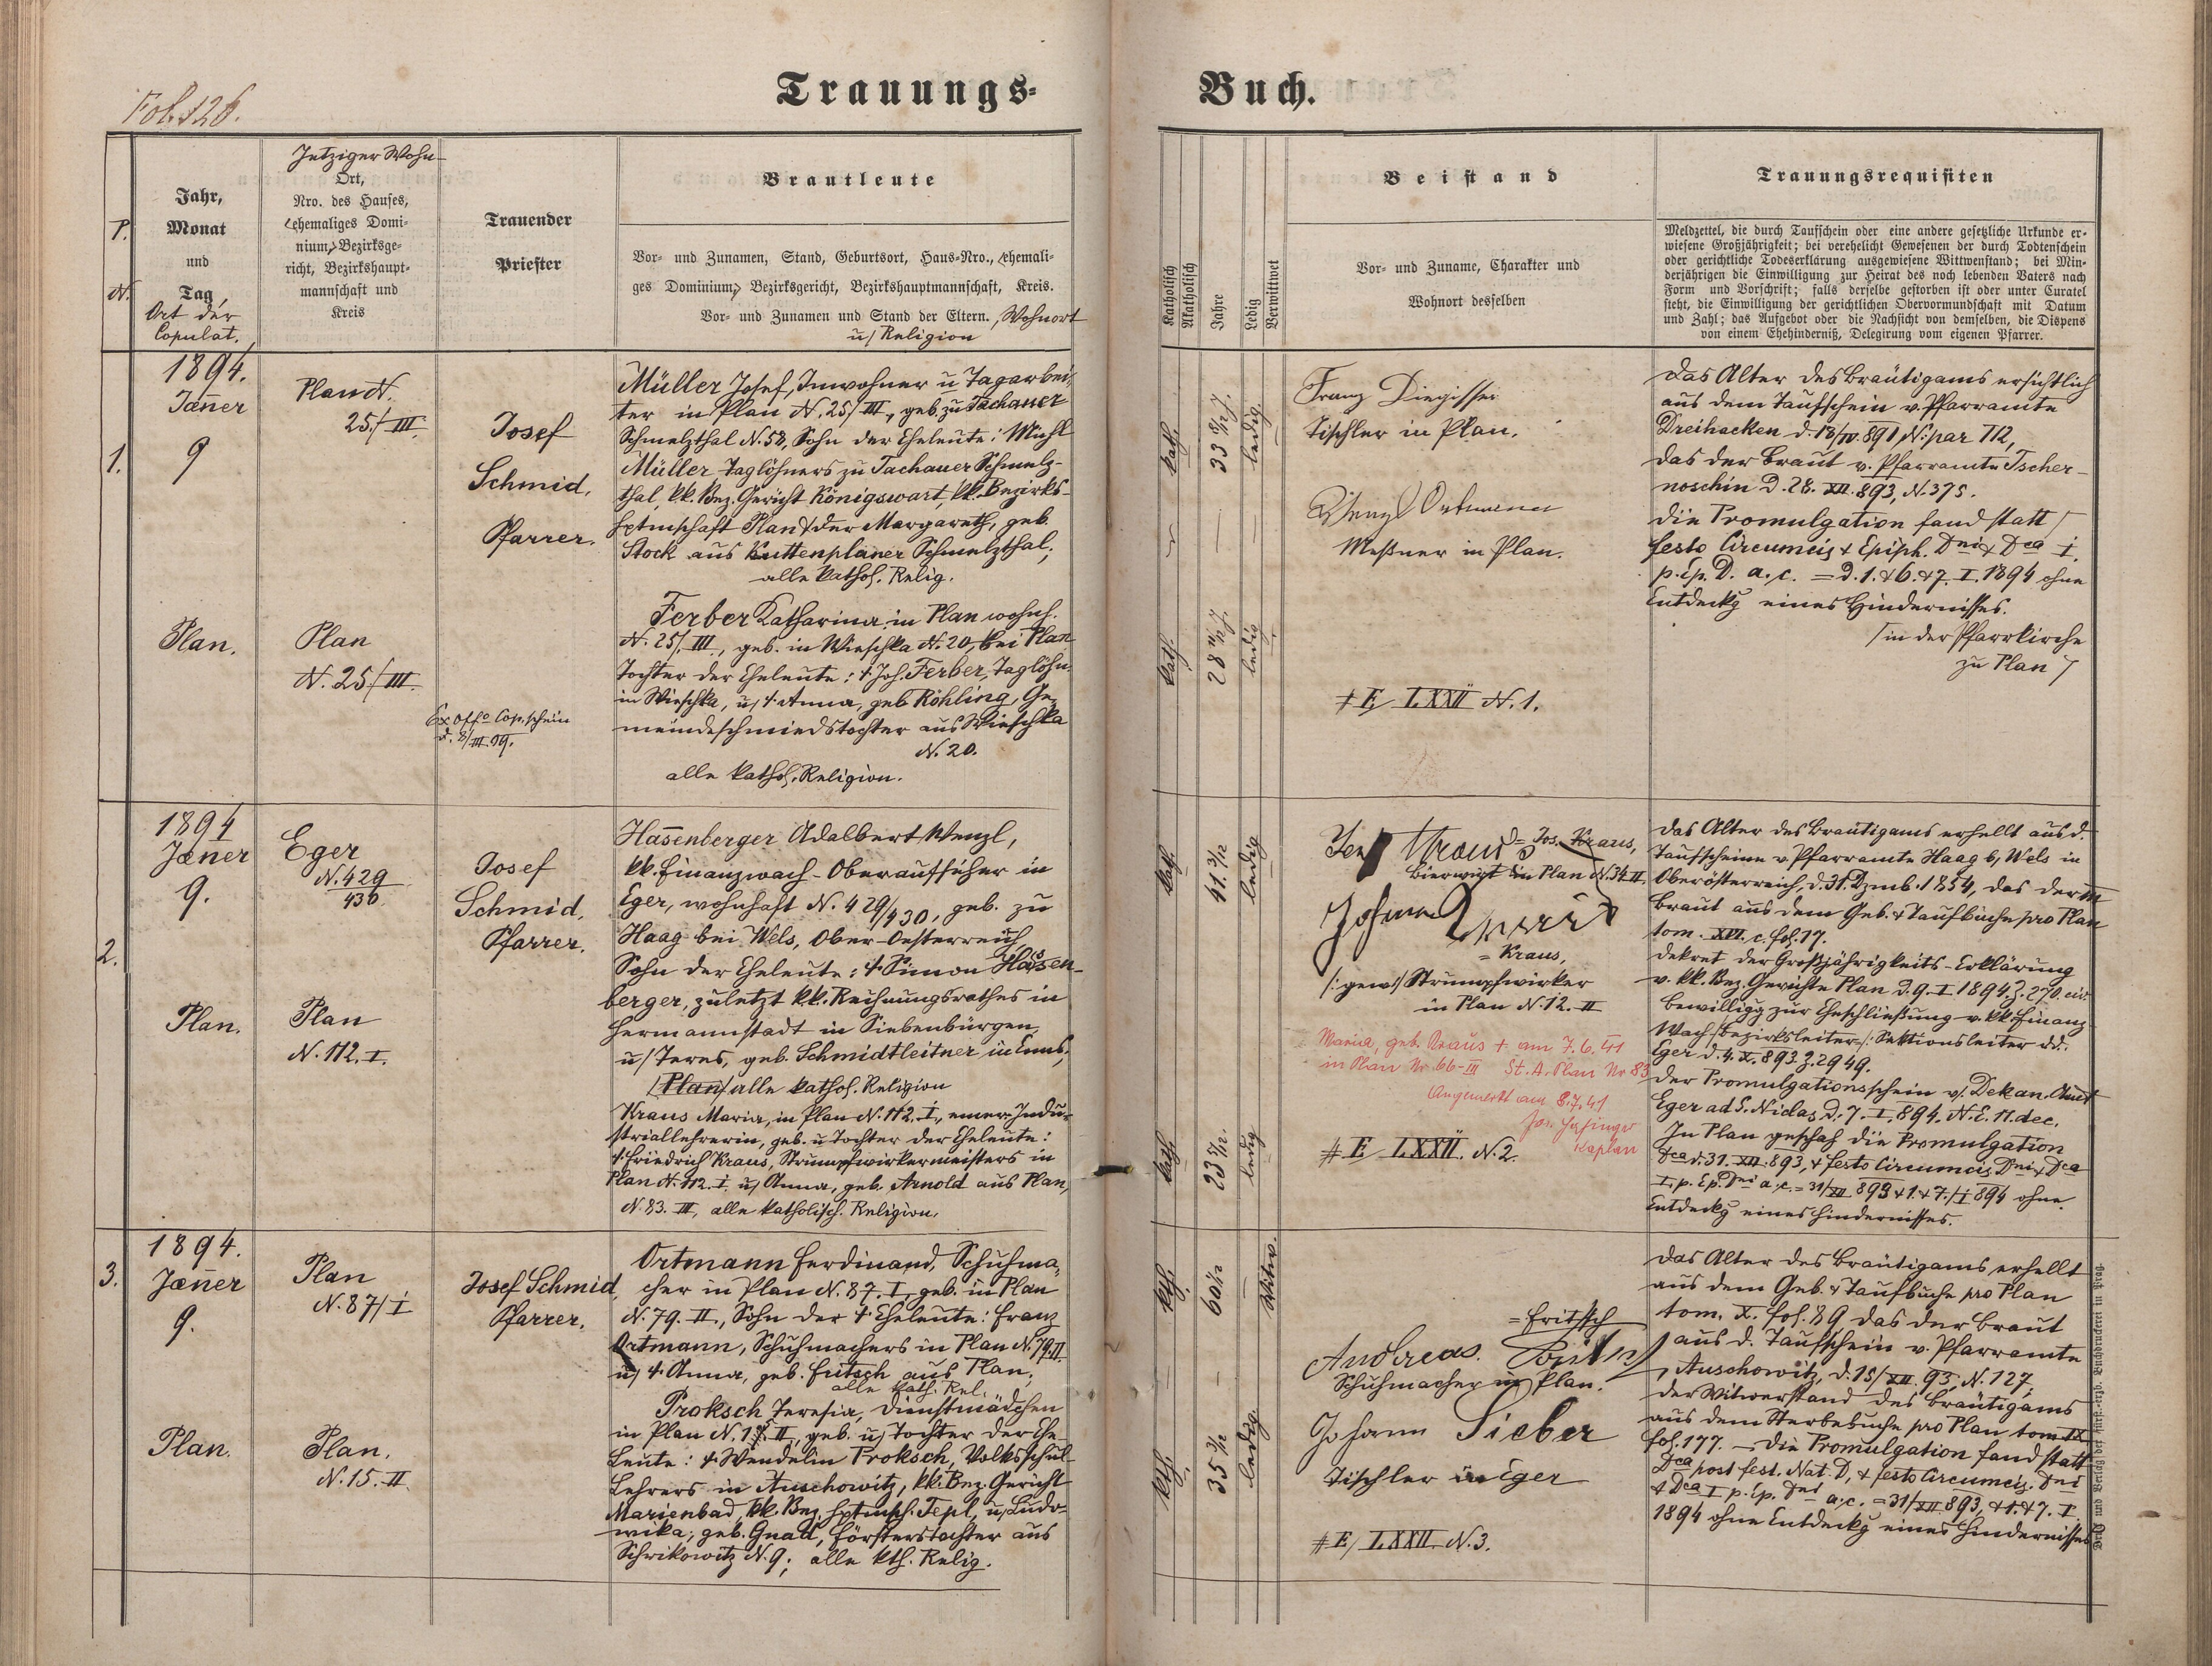 Fol. 126.
Trauungs-Buch.
P.
N.
Jahr,
Monat
und
Tag,
Ort der
Copulat.
Jetziger Wohn-
Ort,
Nro. des Hauses,
(ehemaliges Domi-
nium,) Bezirksge-
richt, Bezirkshaupt-
mannschaft und
Kreis
Trauender
Priester
Brautleute
Vor- und Zunamen, Stand, Geburtsort, Haus-Nro., (ehemali-
ges Dominium,) Bezirksgericht, Bezirkshauptmannschaft, Kreis.
Vor- und Zunamen und Stand der Eltern., Wohnort
u/ Religion
Katholisch
Akatholisch
Jahre
Ledig
Verwittwet
Beistand
Vor- und Zuname, Charakter und
Wohnort desselben
Trauungsrequisiten
Meldzettel, die durch Taufschein oder eine andere gesetzliche Urkunde er-
wiesene Großjährigkeit; bei verehelicht Gewesenen der durch Todtenschein
oder gerichtliche Todeserklärung ausgewiesene Wittwenstand; bei Min-
derjährigen die Einwilligung zur Heirat des noch lebenden Vaters nach
Form und Vorschrift; falls derselbe gestorben ist oder unter Curatel
steht, die Einwilligung der gerichtlichen Obervormundschaft mit Datum
und Zahl; das Aufgebot oder die Nachsicht von demselben, die Dispens
von einem Ehehinderniß, Delegirung vom eigenen Pfarrer.
1.
1894.
Jänner
9
Plan.
Plan N.
25./III.
Plan
N. 25./III.
Josef
Schmid,
Pfarrer.
Ex offo Cop.schein
d. 8/III.99.
Müller Josef, Inwohner u Tagarbei-
ter in Plan N. 25/III, geb. zu Tachauer
Schmelzthal N. 58, Sohn der Eheleute: Michl
Müller Taglöhners zu Tachauer Schmelz-
thal, kk. Bez. Gericht Königswart, kk. Bezirks-
hptmschaft Plan & der Margareth, geb.
Stock aus Kuttenplaner Schmelzthal;
alle kathol. Relig.
Ferber Katharina in Plan wohnh.
N. 25/.III., geb. in Wieschka N. 20, bei Plan
Tochter der Eheleute: † Joh. Ferber, Taglöhn.
in Wieschka, u/ † Anna, geb Röhling, Ge-
meindeschmiedstochter aus Wieschka
N. 20.
alle kathol. Religion.
kath.
33 8/12 J.
ledig.
kath.
28 11/12 J.
ledig
Franz
Tischler in Plan.
Wenzl Ortmann
Meßner in Plan.
# E/ LXXII N. 1.
Das Alter des Bräutigams ersichtlich
aus dem Taufschein v. Pfarramte
Dreihacken d. 18/IV. 891 N: par 112,
das der Braut v. Pfarramte Tscher-
noschin d. 28. XII. 893, N. 375.
Die Promulgation fand statt /
festo Circumcis & Epiph. Dni & Dca I.
p. Ep. D. a. c. = d. 1. & 6. & 7. I. 1894 ohne
Entdeckg eines Hindernisses.
/ in der Pfarrkirche
zu Plan /
2.
1894
Jäner
9.
Plan.
Eger
N. 429
430
Plan
N. 112. I.
Josef
Schmid,
Pfarrer.
Hasenberger Adalbert Wenzl,
kk. Finanzwach-Oberaufseher in
Eger, wohnhaft N. 429/430, geb. zu
Haag bei Wels, Ober-Oesterreich,
Sohn der Eheleute: † Simon Hasen-
berger, zuletzt k.k. Rechnungsrathes in
Hermannstadt in Siebenbürgen,
u/ Teres, geb. Schmidtleitner in Enns,
/Plan/ alle kathol. Religion
Kraus Maria, in Plan N. 112. I., emer. Indu-
striallehrerin, geb. u Tochter der Eheleute:
† Friedrich Kraus, Strumpfwirkermeisters in
Plan N. 112. I. u/ Anna, geb. Arnold aus Plan,
N. 83. III, alle katholisch. Religion.
kath.
41. 3/12
ledig
kath.
23 5/12.
ledig
Kraus = Jos. Kraus,
Bierwirt in Plan N. 34 II.
Johann
= Kraus,
/: gew :/ Strumpfwirker
in Plan N. 12. II
Maria, geb. Kraus † am 7.6.41
in Plan Nr. 66-III St. A. Plan Nr 83
Angemerkt am 8.7.41
Kaplan
# E/ LXXII. N. 2.
Das Alter des Bräutigams erhellt aus d.
Taufscheine v. Pfarramte Haag b/ Wels in
Oberösterreich, d. 31. Dzmb. 1854, das der
Braut aus dem Geb. & Taufbuche pro Plan
tom. XVI. c. fol. 17.
Dekret der Großjährigkeits-Erklärung
v. kk. Bez. Gerichte Plan d. 9. I. 1894 Z. 270. civ.
Bewilligg zur Eheschließung v. kk. Finanz
Wach/Bezirksleiter /: Sektionsleiter dd.
Eger d. 4. X. 893 Z. 2949.
Der Promulgationsschein v/ Dekan. Amt
Eger ad S. Niclas d. 7. I. 894. N. E. 11. dec.
In Plan geschah die Promulgation
Dca d. 31. XII. 893, & festo Circumcis. Dni, & Dca
I. p. Ep. Dni a. c. = 31/XII 893 & 1. & 7./I 894 ohne
Entdeckg eines Hindernisses.
3.
1894.
Jänner
9.
Plan.
Plan
N. 87/I
Plan.
N. 15. II.
Josef Schmid,
Pfarrer.
Ortmann Ferdinand, Schuhma-
cher in Plan N. 87. I, geb. in Plan
N. 79. II., Sohn der † Eheleute: Franz
Ortmann, Schuhmachers in Plan N. 79. II.
u/ † Anna, geb. Fritsch aus Plan;
alle kath. Rel.
Proksch Teresia, Dienstmädchen
in Plan N. 15. II, geb. u/ Tochter der Ehe-
leute: † Wendelin Proksch, Volksschul-
Lehrers in Auschowitz, kk. Bez. Gericht
Marienbad, kk. Bez. hptmsch. Tepl, u/ Ludo-
wika, geb. Gnad, Försterstochter aus
Schrikowitz N. 9; alle kth. Relig.
kth.
60 1/12
Witw.
kth.
35 3/12
ledig.
= Fritsch
Andreas
Schuhmacher in Plan.
Johann Sieber
Tischler in Eger
# E/ LXXII. N. 3.
Das Alter des Bräutigams erhellt
aus dem Geb. & Taufbuche pro Plan
tom. X. fol. 89, das der Braut
aus d. Taufschein v. Pfarramte
Auschowitz, d. 18/XII. 93, N. 127,
der Witwerstand des Bräutigams
aus dem Sterbebuche pro Plan tom IX
fol. 177. – Die Promulgation fand statt
Dca post fest. Nat. D, & festo Circumcis. Dni
& Dca I p. Ep. Dni a. c. = 31/XII 893, & 1. & 7. I.
1894 ohne Entdeckg eines Hindernisses
Druck und Verlag der fürst.-erzb. Buchdruckerei in Prag.